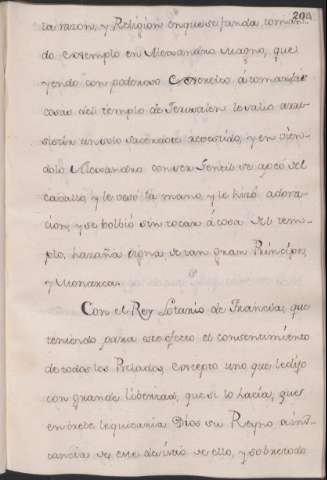 204
la razon, y Religion en que se funda, toman-
do exemplo en Alexandro Magno, que
yendo con poderoso Exercito á tomar las
cosas del templo de Jerusalen le salio a re-
sistir un solo Sacerdote revestido, y en vien-
dolo Alexandro con ser Gentil se apeó del
caballo, y le vesó la mano, y le hizo adora-
cion, y se bolbió sin tocar á cosa del tem-
plo, hazaña digna de tan gran Principe,
y Monarca.
Con el Rey Lotario de Francia, que
teniendo para este efecto el consentimiento
de todos los Prelados, excepto uno que le dijo
con grande libertad, que si lo hacia, que
en brebe le quitaria Dios su Reyno á ins-
tancia de este desistio de ello, y sobre todo